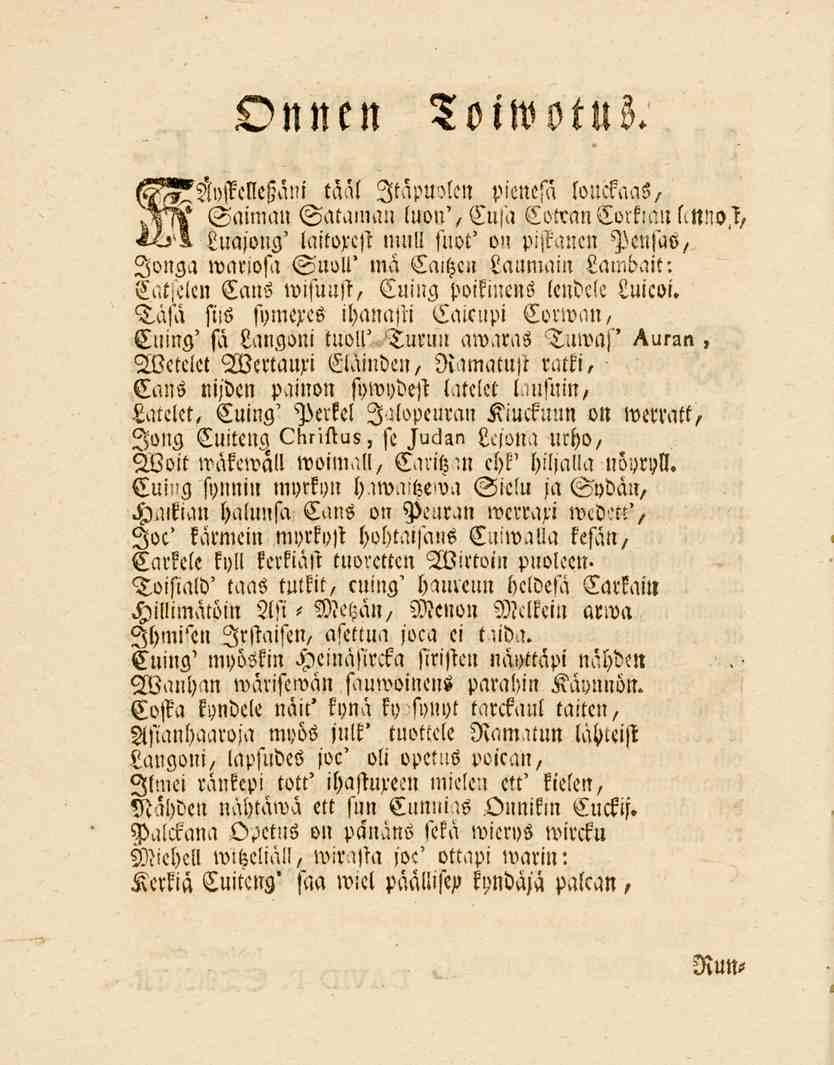 Onnen Toiwotus.
KÄyskelleßäni tääl Itäpuolen pienesä louckaas,
Saiman Sataman luon', Cusa Cotcan Corkian
Luajong' laitoxest mull suot' on piskanen Pensas,
Jonga warjosa Suoll' mä Caitzen Laumain Lambait:
Catselen Cans wisuust, Cuing poikinens lendele Luicoi.
Täsä siis symexes ihanasti Caicupi Corwan,
Cuing' sä Langoni tuoll' Turun awaras Tuwas' Auran,
Wetelet Wertauxi Eläinden, Ramatust ratki,
Cans nijden painon sywydest latelet lausuin,
Latelet, Cuing' Perkel Jalopeuran Kiuckuun on werratt,
Jong Cuiteng Christus, se Judan Lejona urho,
Woit wäkewäll woimall, Caritzan ehk' hiljalla nöyryll.
Cuing synnin myrkyn hawaitzewa Sielu ja Sydän,
Haikian halunsa Cans on Peuran werraxi wedett',
Joc' kärmein myrkyst hohtaisans Cuiwalla kesän,
Carkele kyll kerkiäst tuoretten Wirtoin puoleen.
Toisiald' taas tutkit, cuing' haureun heldesä Carkain
Hillimätöin Asi - Metzän, Menon Melkein arwa
Ihmisen Irstaisen, asettua joca ei taida.
Cuing' myöskin Heinäsircka siristen näyttäpi nähden
Wanhan wärisewän sauwoinens parahin Käynnön.
Coska kyndele näit' kynä ky synyt tarckaul taiten,
Asianhaaroja myös julk' tuottele Ramatun lähteist
Langoni, lapsudes joc' oli opetus poican,
Ilmei ränkepi tott' ihastuxeen mielen ett' kielen,
Nähden nähtäwä ett sun Cunnias Onnikin Cuckij.
Palckana Opetus on pänäns sekä wierys wircku
Miehell witzeliäll, wirasta joc' ottapi warin:
Kerkiä Cuiteng' saa wiel päällisex kyndäjä palcan,
Run-